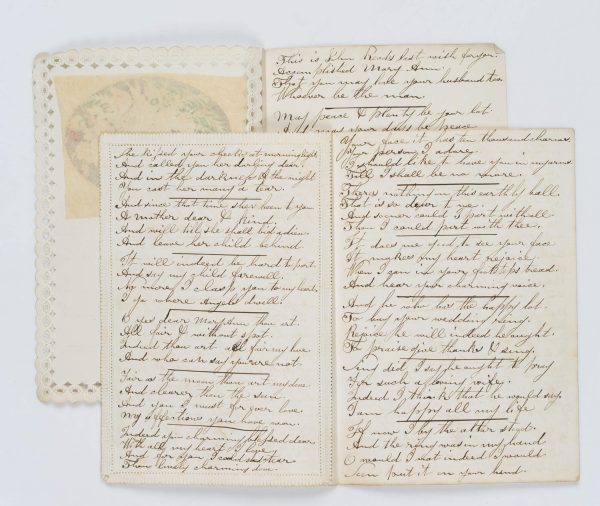 This is John Reeds best wish for you.
Accomplished Mary Ann.
That you may like your husband too
Whoever be the man.
May peace & plenty be your lot
your days be peace
She kissed your cheek at morning light
And called you her darling dear.
And in the darkness of the night
You cost her many a tear.
And since that time shes been to you
A mother dear & kind.
And will till she shall bid adieu.
And leave her child behind.
It will indeed be hard to part.
And say my child farewell.
No more I clasp you to my heart,
I go where Angels dwell.
dear Mary Ann thou art.
All fair & without spot.
Indeed thou art all fair my love
And who can say you are not.
Fair as the moon thou art my dove
And clearer than the sun
And you I must for ever love
My affections you have won.
Indeed you charming blessed dear
With all my heart I love
And for you I could shed tear
Thou lovely charming dove.
Your face it has ten thousand charms
Your person I adore
I should like to have you in my arms
Till I shall be no more.
Theres nothing on this earthly ball.
That is so dear to me.
And sooner could I part with all
Than I could part with thee.
It does me good to see your face
It makes my heart rejoice
When I can in your footsteps tread.
And hear your charming voice.
And he who has the happy lot.
To buy your wedding ring.
Rejoice he will indeed he ought.
To praise give thanks & sing.
Sing did I say he ought to pray
For such a loving wife.
Indeed I think that he would say
I am happy all my life
If now I by the altar stood.
And the ring was in my hand
O would I not indeed I would
Soon put it on your hand.